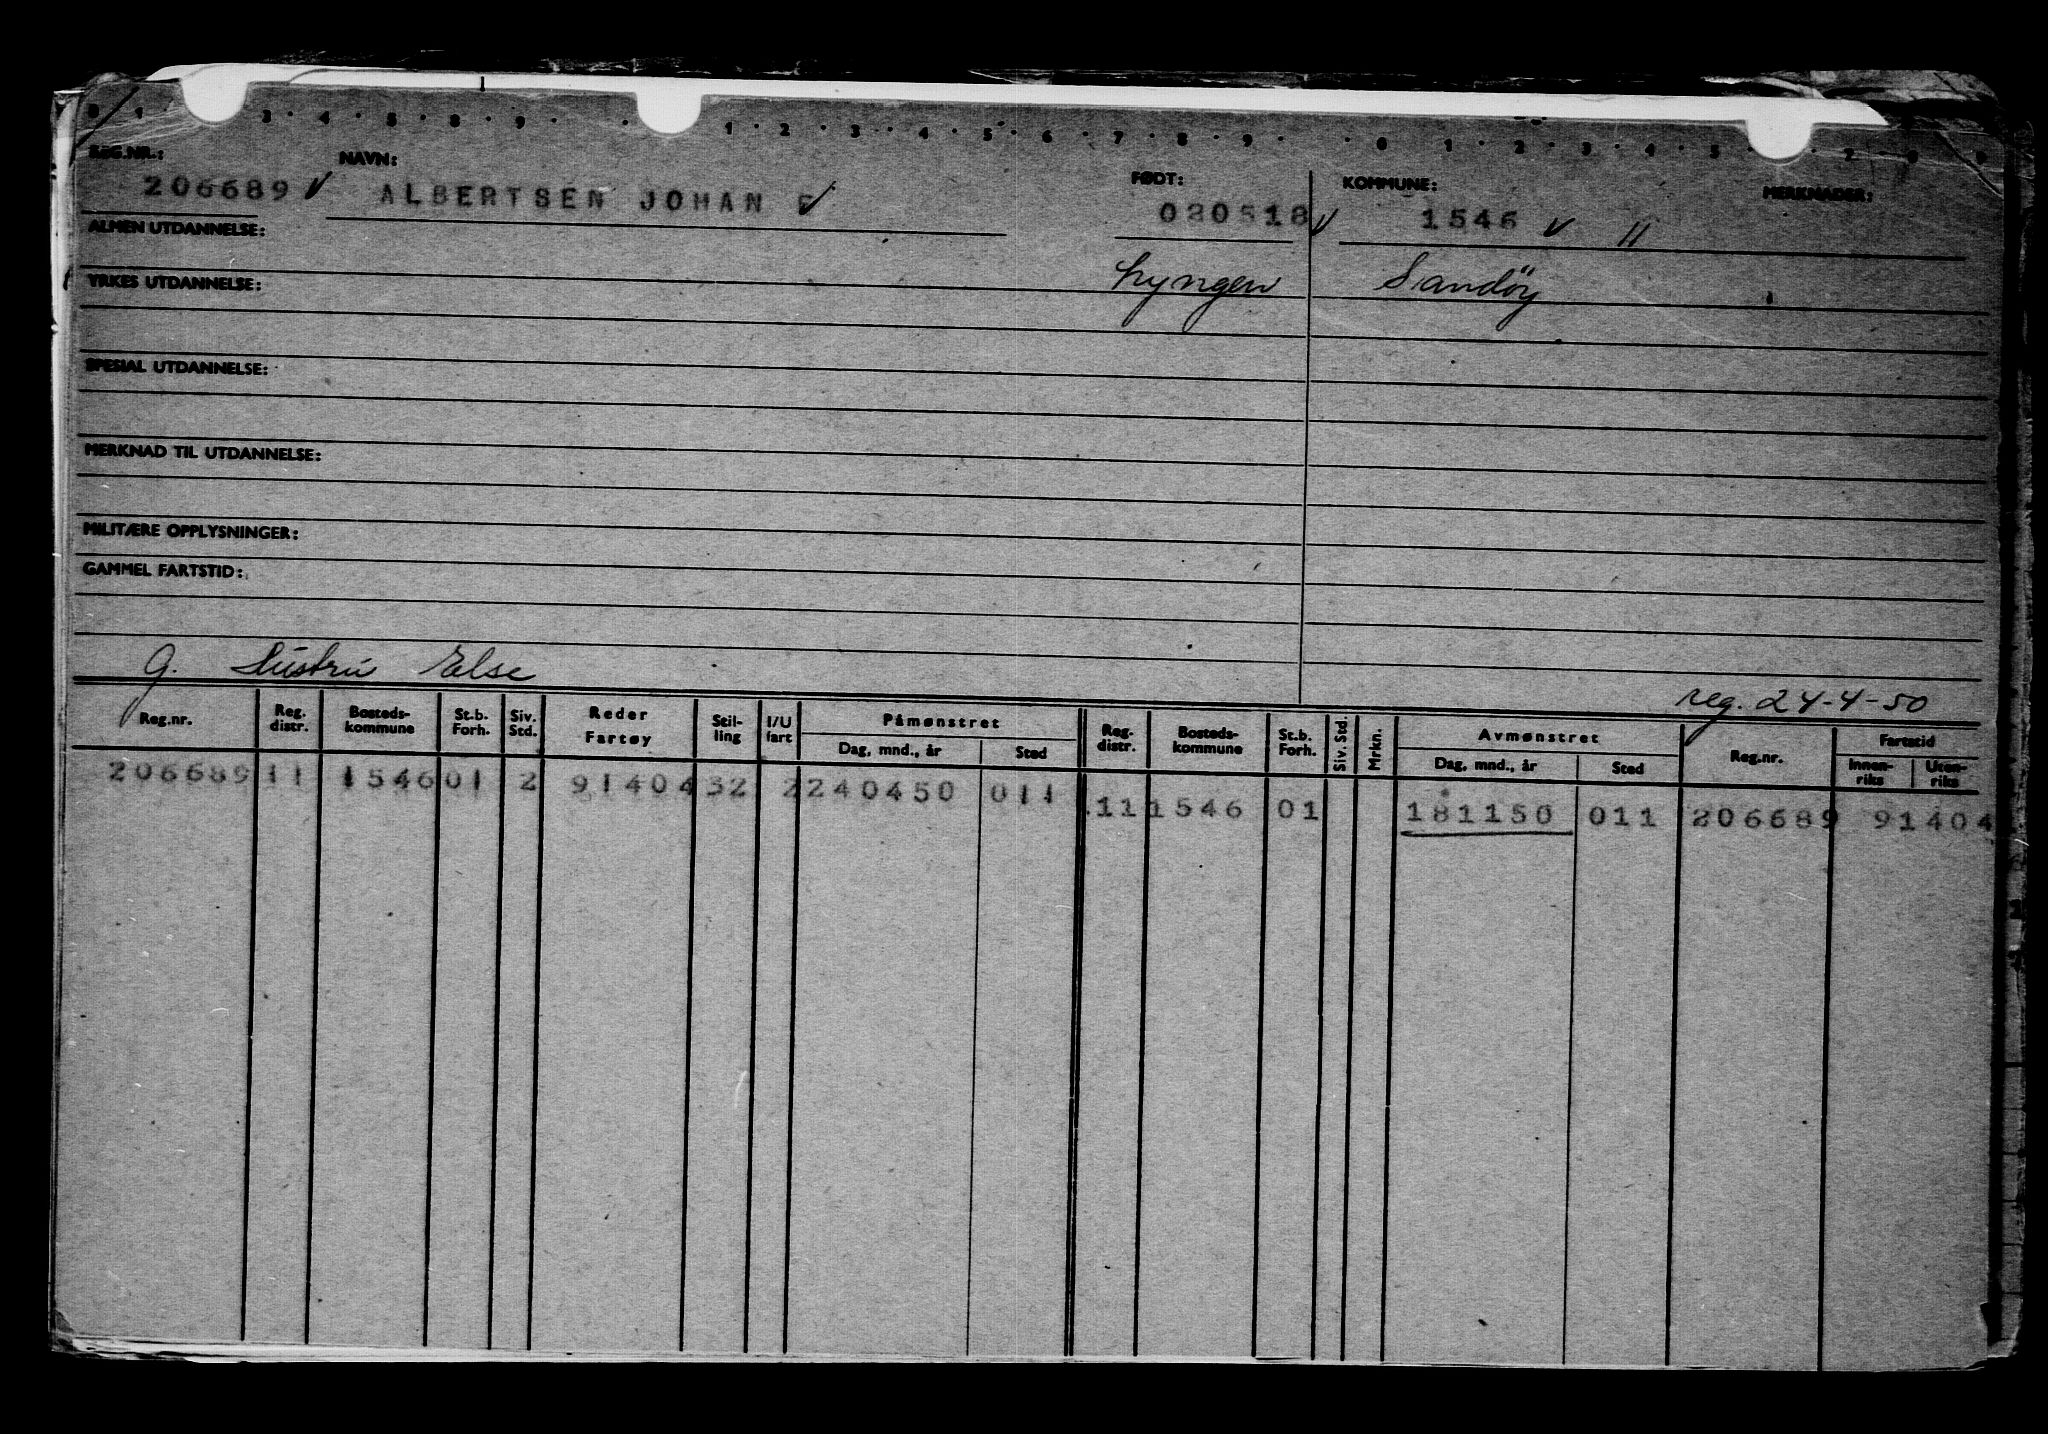 0 1 3 4 5 8 9 1 2 3 4 5 6 7 8 9 0 1 2 3 4 5 7 8 9
REG.NR.: NAVN: FØDT: KOMMUNE: MERKNADER:
206689 ✓ ALBERTSEN JOHAN ✓ 080818 ✓ 1546 ✓ 11
ALMEN UTDANNELSE:
YRKES UTDANNELSE: Lyngen Sandöy
SPESIAL UTDANNELSE:
MERKNAD TIL UTDANNELSE:
MILITÆRE OPPLYSNINGER:
GAMMEL FARTSTID:
G. Hustru Else
reg. 24-4-50
Reg.nr. Reg. distr. Bosteds-kommune St.b. Forh. Siv. Std. Reder Fartøy Stil-ling I/U fart Påmønstret Dag, mnd., år Sted Reg. distr. Bosteds-kommune St.b. Forh. Siv. Std. Mrkn. Avmønstret Dag, mnd., år Sted Reg.nr. Fartstid Innen-riks Uten-riks
206689 11 1546 01 2 91404 32 2 240450 011 11 1546 01 181150 011 206689 91404